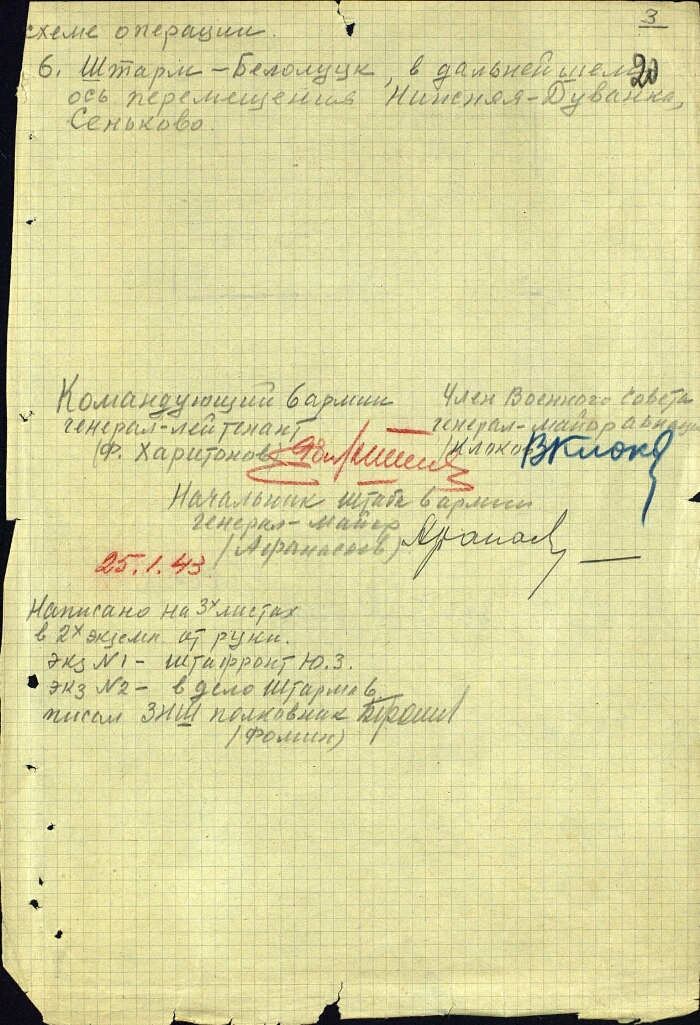 3
схеме операции.
20
6. Штарм – Белолуцк, в дальнейшем
ось перемещения Нижняя-Дуванка,
Сеньково.
Командующий 6 армии
генерал-лейтенант
(Ф. Харитонов)
Член Военного Совета
генерал-майор авиации
(Клоков
ВКлоков
Начальник штаба 6 армии
генерал-майор
(Афанасьев)
25.1.43
Написано на 3х листах
в 2х экземп. от руки.
экз №1 – штафронт Ю.З.
экз №2 – в дело Штарма 6
писал ЗНШ полковник
(Фомин)